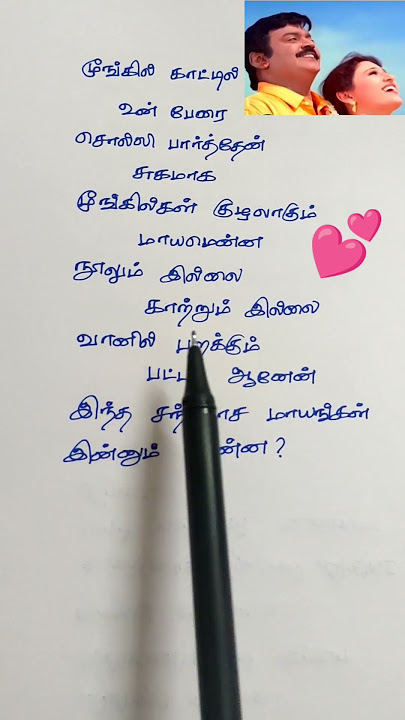 மூங்கில் காட்டில்
உன் பேரை
சொல்லி பார்த்தேன்
சுகமாக
மூங்கில்கள் குழலாகும்
மாயமென்ன
நூலும் இல்லை
காற்றும் இல்லை
வானில் பறக்கும்
ஆனேன்
இந்த மாயங்கள்
இன்னும்